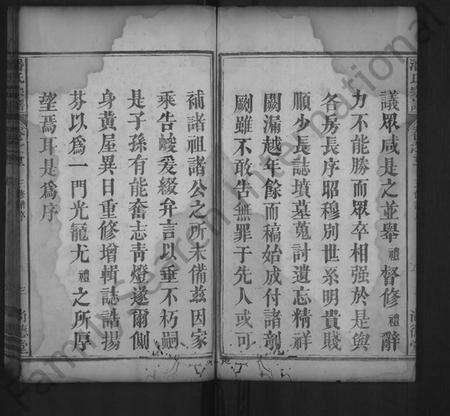 議眾咸是之並舉禮督修禮辭
力不能勝而眾卒相強於是與
各房長序昭穆別世系明貴賤
順少長誌墳墓蒐討遺忘精祥
闕漏越年餘而稿始成付諸剞
劂雖不敢告無罪于先人或可
補諸祖諸公之所未備茲因家
乘告竣爰綴弁言以垂不朽嗣
是子孫有能奮志青燈遂爾側
身黉屋異日重修增輯誌誥揚
芬以為一門光寵尤禮之所厚
望焉耳是為序